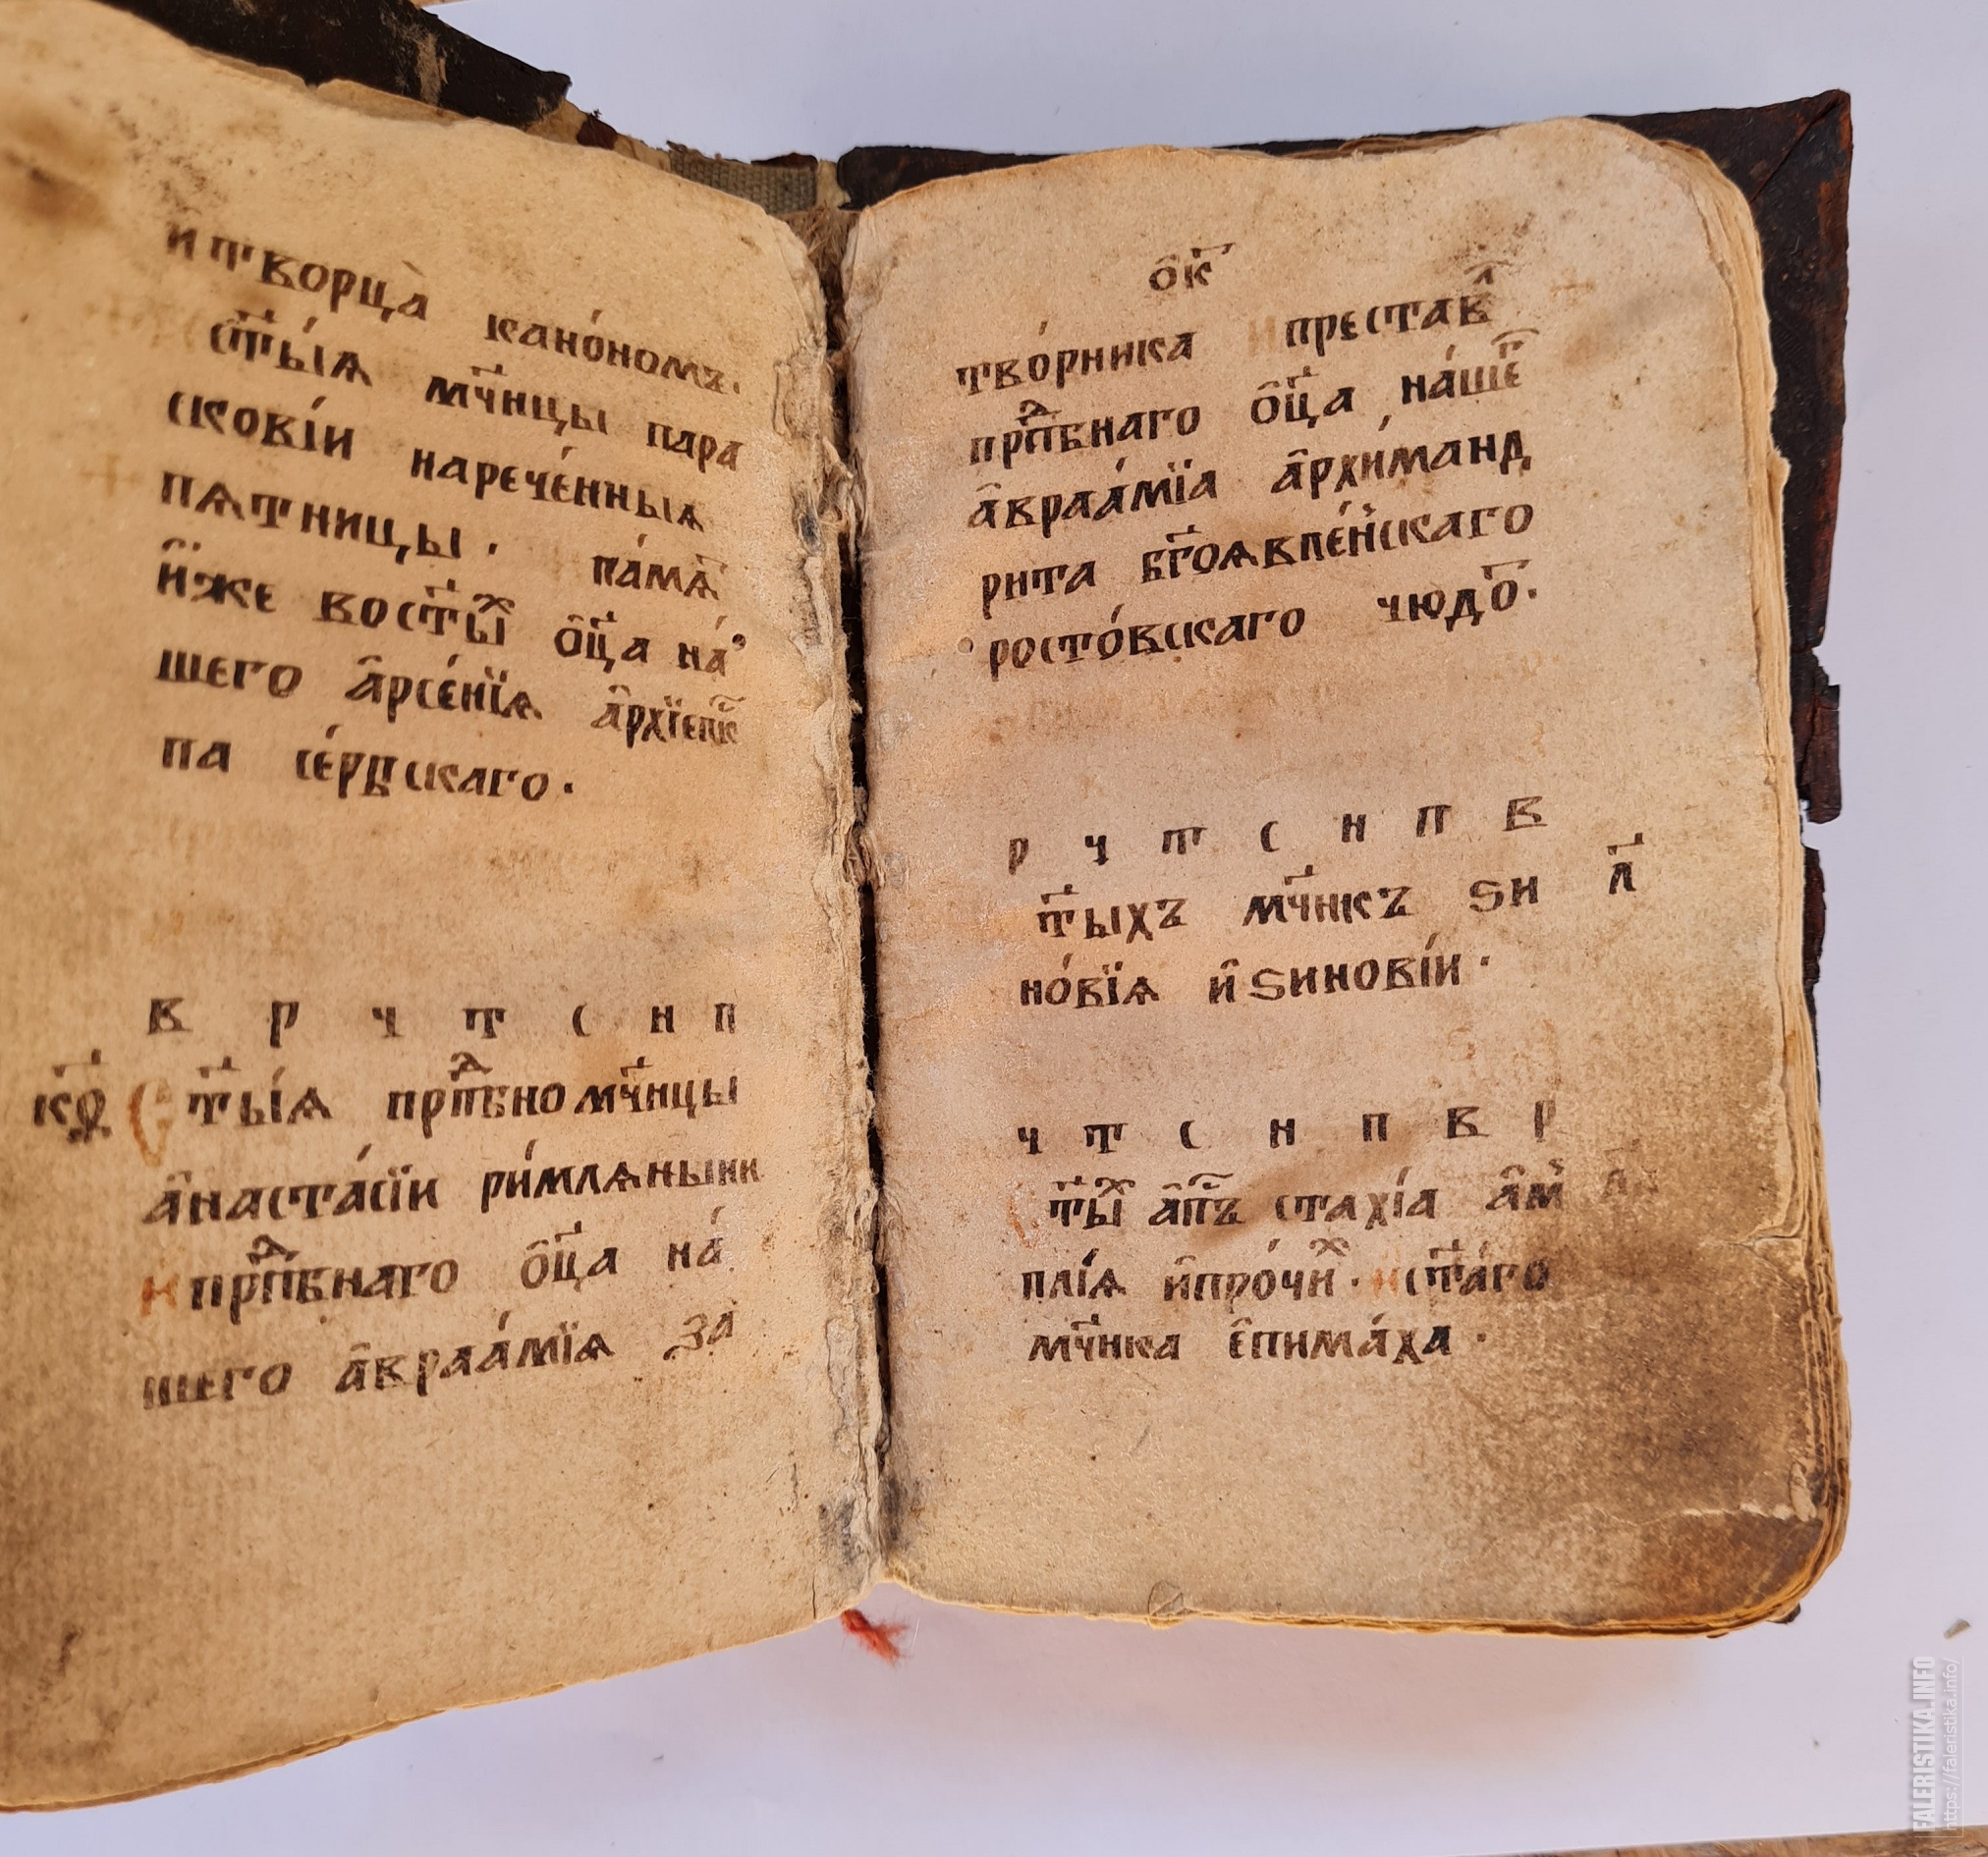 и творца̀ кано́номъ.
ст҃ы́ѧ мч҃нцы пара
скові́и нарече́нныѧ
пѧтницы. па́мѧ
и҆́же востⷯы҃ ѻ҆ц҃а на́
шего а҆рсе́нїѧ а҆рхїепк҃
па се́рпскаго.
в р ч т с н п
к҃ѳ ст҃ы́ѧ прпⷣбномч҃нцы
а҆наста́сїи ри́млѧныни
и прпⷣбнаго ѻ҆ц҃а на́
шего а҆враа́мїѧ за
ѻ҆к҃
тво́рника и преставⷧ
прпⷣбнаго ѻ҆ц҃а на́шеⷢ
а҆враа́мїа а҆рхи́манд
рита бг҃оѧвле́нскаго
росто́вскаго чюдоⷢ.
р ч т с н п в
т҃ыхъ мч҃нкъ ѕи л҃
но́вїѧ и҆ ѕинові́и.
ч т с н п в р
т҃ыⷯ а҆п҃лъ стахі́а а҆м
плі́ѧ и҆ про́чиⷯ. и ст҃а́го
мч҃нка є҆пима́ха.
FALERISTIKA.INFO
https://faleristika.info/